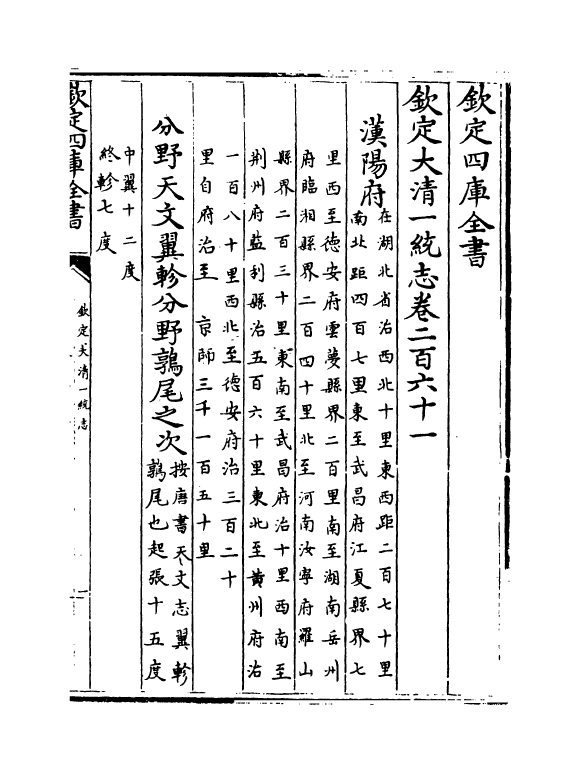 欽定四庫全書
欽定大清一統志卷二百六十一
漢陽府在湖北省治西北十里東西距二百七十里
南北距四百七里東至武昌府江夏縣界七
里西至徳安府雲夢縣界二百里南至湖南岳州
府臨湘縣界二百四十里北至河南汝寧府羅山
縣界二百三十里東南至武昌府治十里西南至
荆州府監利縣治五百六十里東北至黄州府治
一百八十里西北至徳安府治三百二十
里自府治至 京師三千一百五十里
分野天文翼軫分野鶉尾之次按唐書天文志翼軫
鶉尾也起張十五度
中翼十二度
終軫七度
欽定四庫全書
欽定大清一統志